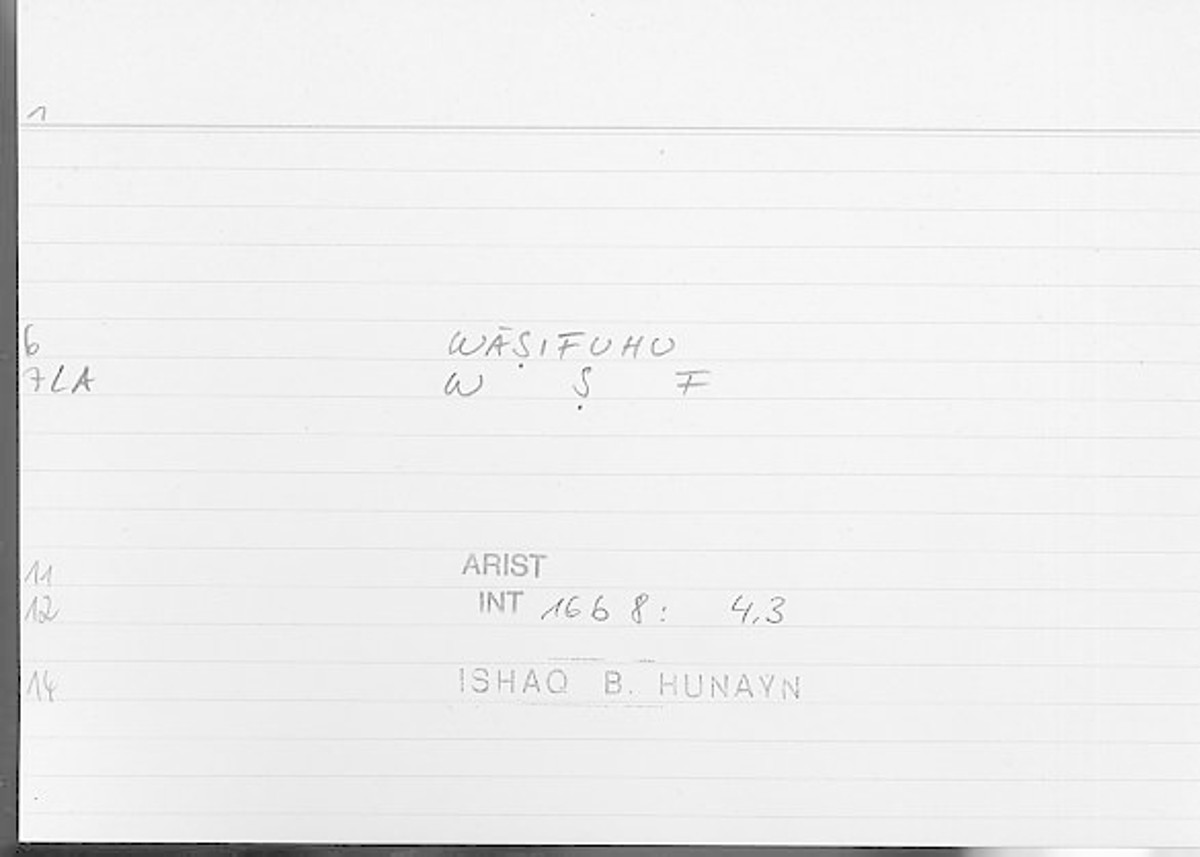 1
6 WĀṢIFUHU
7LA W Ṣ F
11 ARIST
12 INT 16b 8: 4,3
14 ISHAQ B. HUNAYN